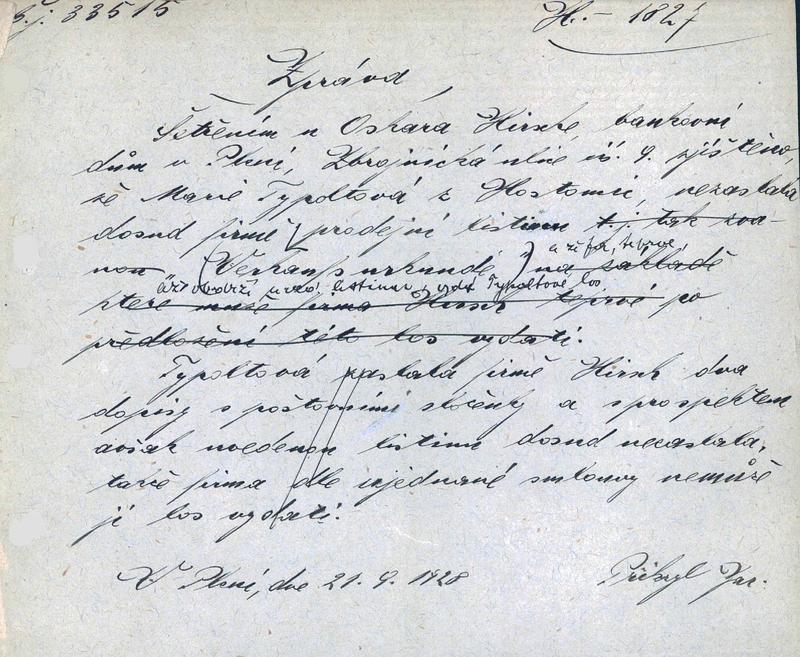 č.j. 33515
H. - 1827
Zpráva
Šetřením u Oskara Hirsche, bankovní
dům v Plzni, Zbrojnická ulice čís. 9. zjištěno,
že Marie Typoltová z Hostomic, nezaslala
dosud firmě prodejní listinu t. j. tak zva-
nou (Verkaufsurkunde) na základě
a že fa, teprve,
až obdrží uved. listinu, vydá Typoltové los
které může firma Hirsch teprvé po
předložení této los vydati.
Typoltová zaslala firmě Hirsch dva
dopisy s poštovními složenky a s prospektem
avšak uvedenou listinu dosud nezaslala,
takže firma dle ujednané smlouvy nemůže
jí los vydati.
V Plzni, dne 21. 9. 1928
Přibyl Jar.